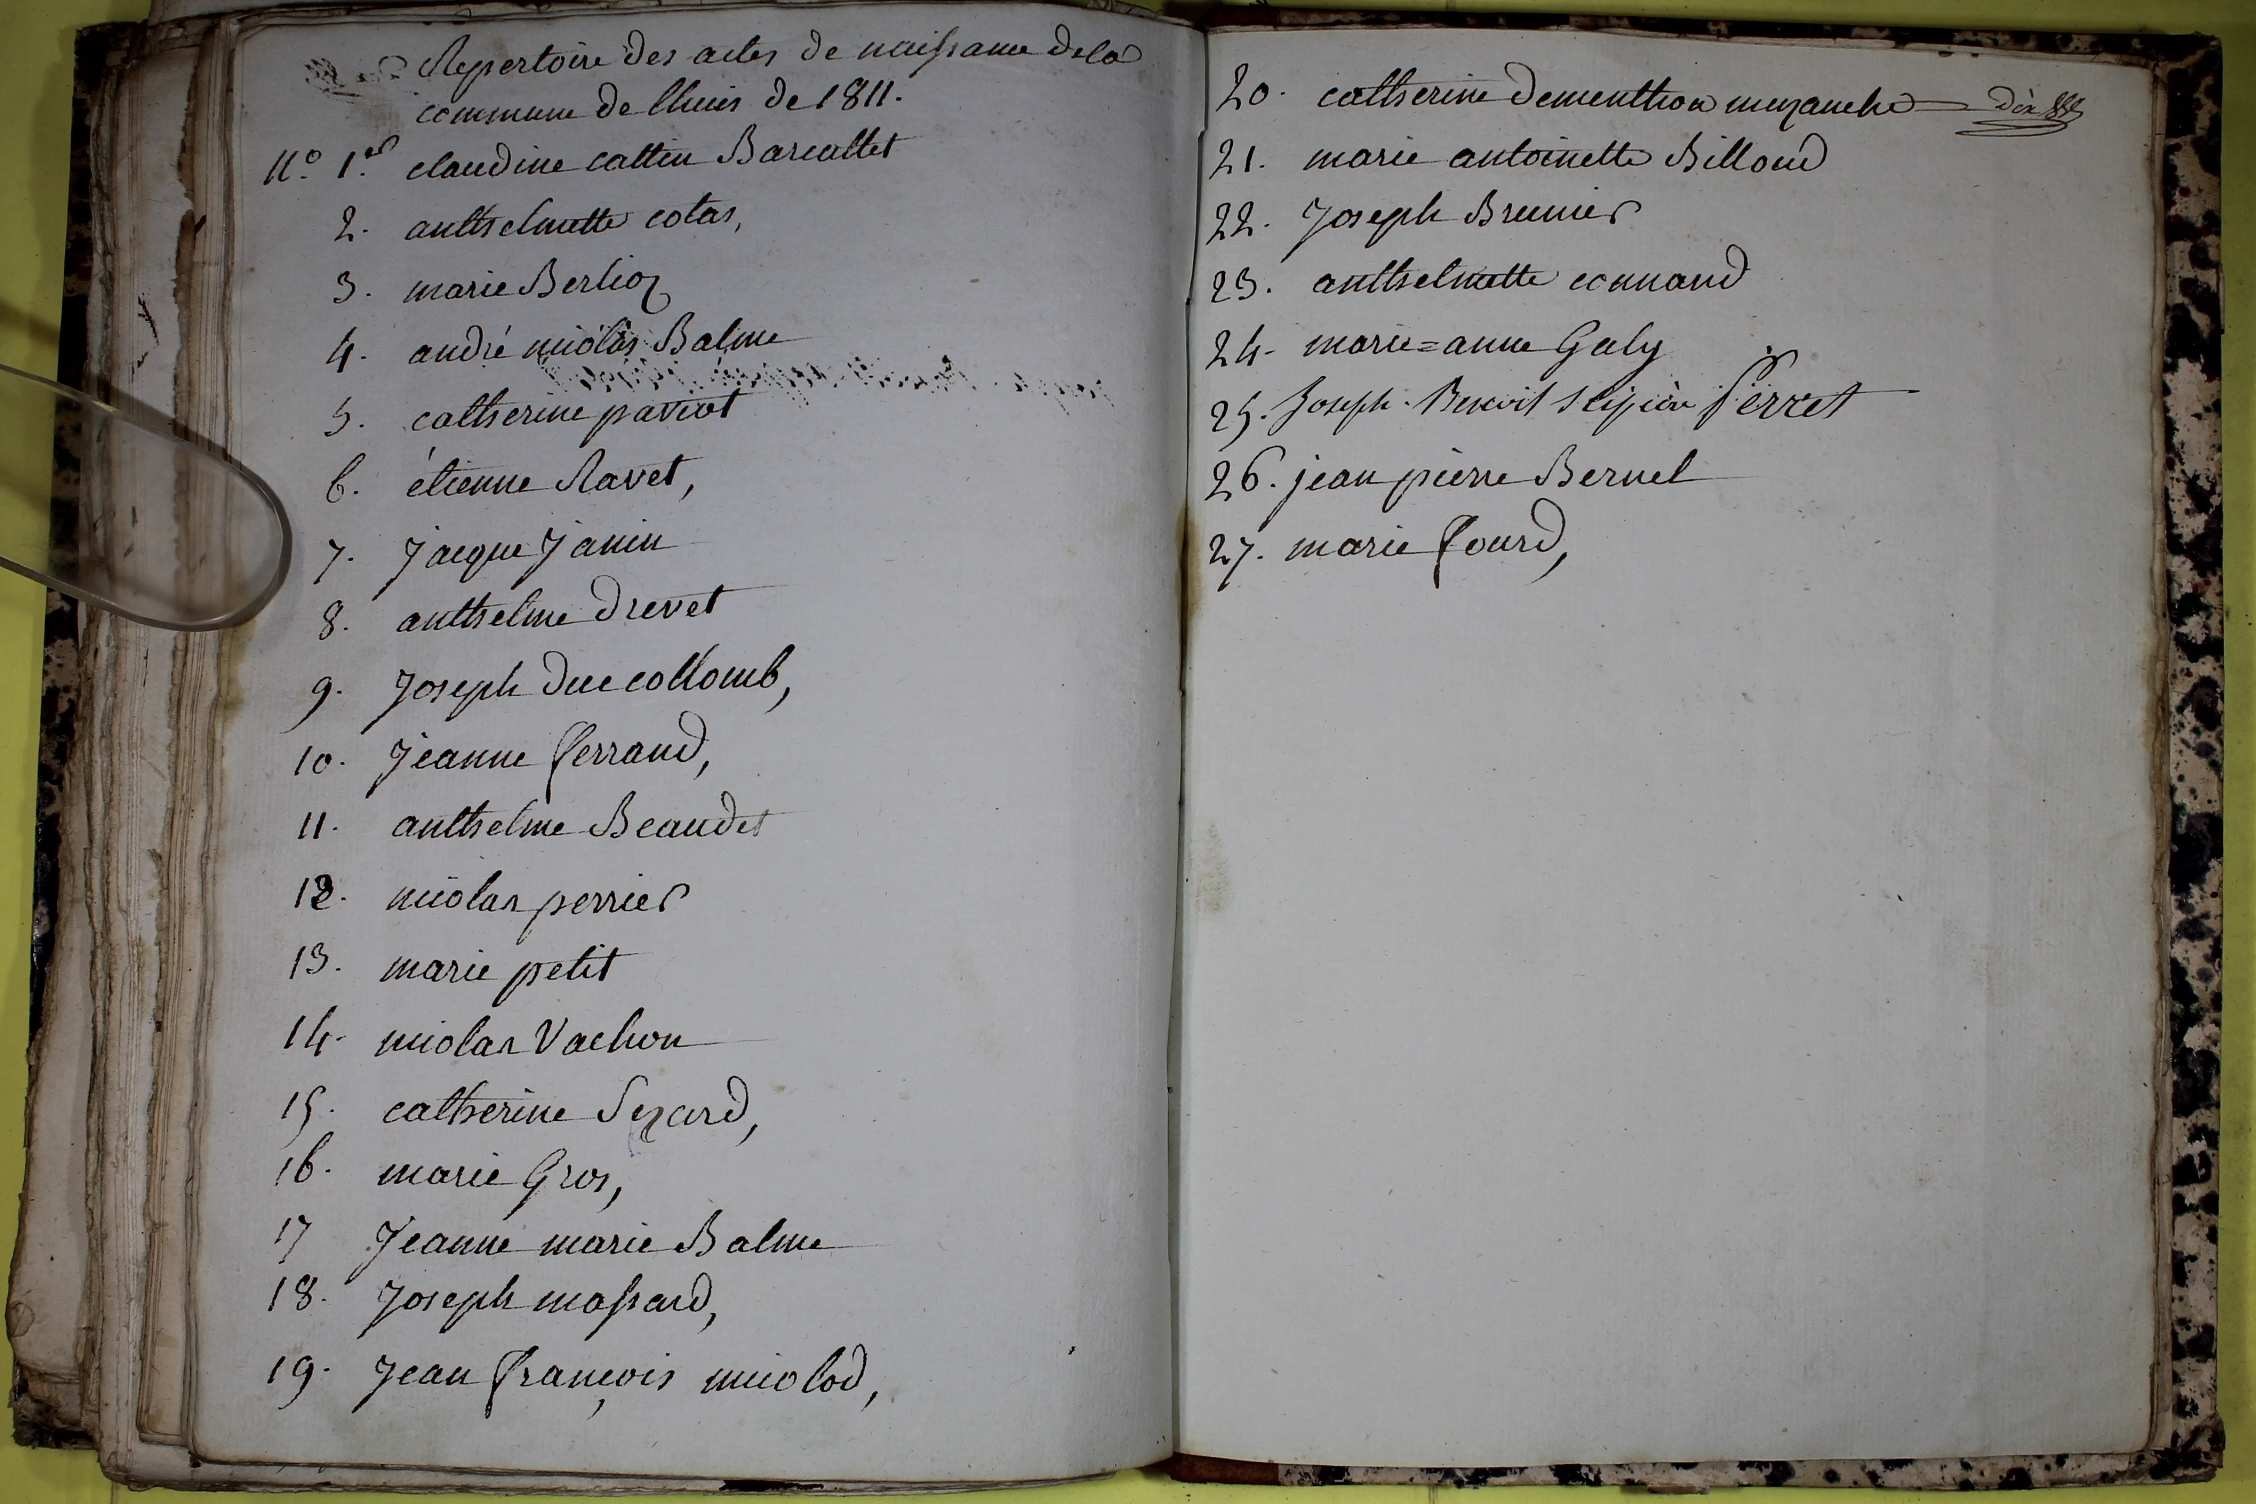 Repertoire des actes de naissance dela
commune de lhuis de 1811.
N.º 1.er claudine cattin Barcattet
2. anthelmette cotas,
3. marie Berlioz
4. andré nicolas Balme
5. catherine paviot
6. étienne Ravet,
7. Jacque Janin
8. anthelme drevet
9. Joseph duc collomb,
10. Jeanne ferrand,
11. anthelme Beaudet
12. nicolas perrier
13. marie petit
14. nicolas Vachon
15. catherine Sezard,
16. marie Gros,
17 Jeanne marie Balme
18. Joseph massard,
19. Jean françois nicolod,
20. catherine dementhon mezanche
21. marie antoinette Billoud
22. Joseph Brunier
23. anthelmette connand
24. marie=anne Galy
25. Joseph. Benoit Scipion Perret
26. jean pierre Bernel
27. marie fourd,